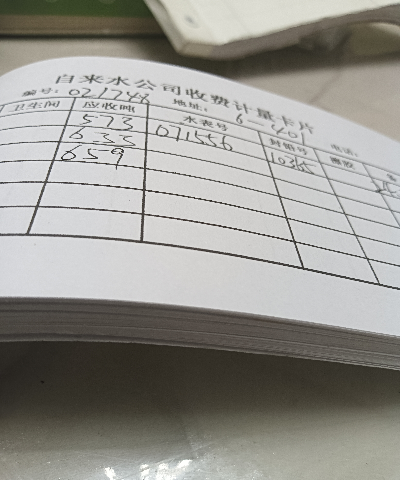 自来水公司收费计量卡片
编号: 021744 地址: 6 401 电话:
卫生间 应收吨 水表号 封铅号
573 071556 10365
635
659